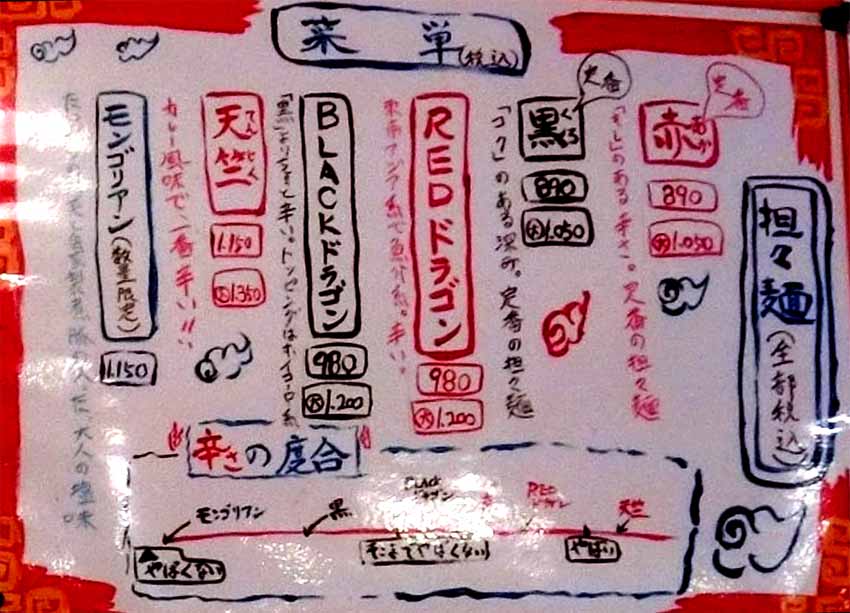 菜単(税込)
担々麺(全部税込)
定番
赤
あか
890
大1.050
のある辛さ。定番の担々麺
定番
黒
くろ
890
大1.050
「コク」のある深み。定番の担々麺
REDドラゴン
980
大1.200
東南アジア系で魚介系。辛い。
BLACKドラゴン
980
大1.200
「黒」よりもっと辛い。トッピングは
天竺
てんじく
1.150
大1.350
カレー風味で、一番辛い!!
モンゴリアン(数量限定)
1.150
大人の塩味
辛さの度合
モンゴリアン
黒
BLACK
ドラゴン
RED
ドラゴン
天竺
やばくない
そこまでやばくない
やばい